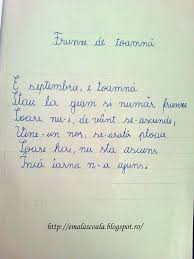 Frunze de toamnă
E septembrie, e toamnă
Stau la geam si număr frunze
Soare nu-i, de vânt se-ascunde,
Vine-un nor, se-arată ploaie
Soare hai, nu sta ascuns
Încă iarna n-a ajuns.
http://emalascoala.blogspot.ro/